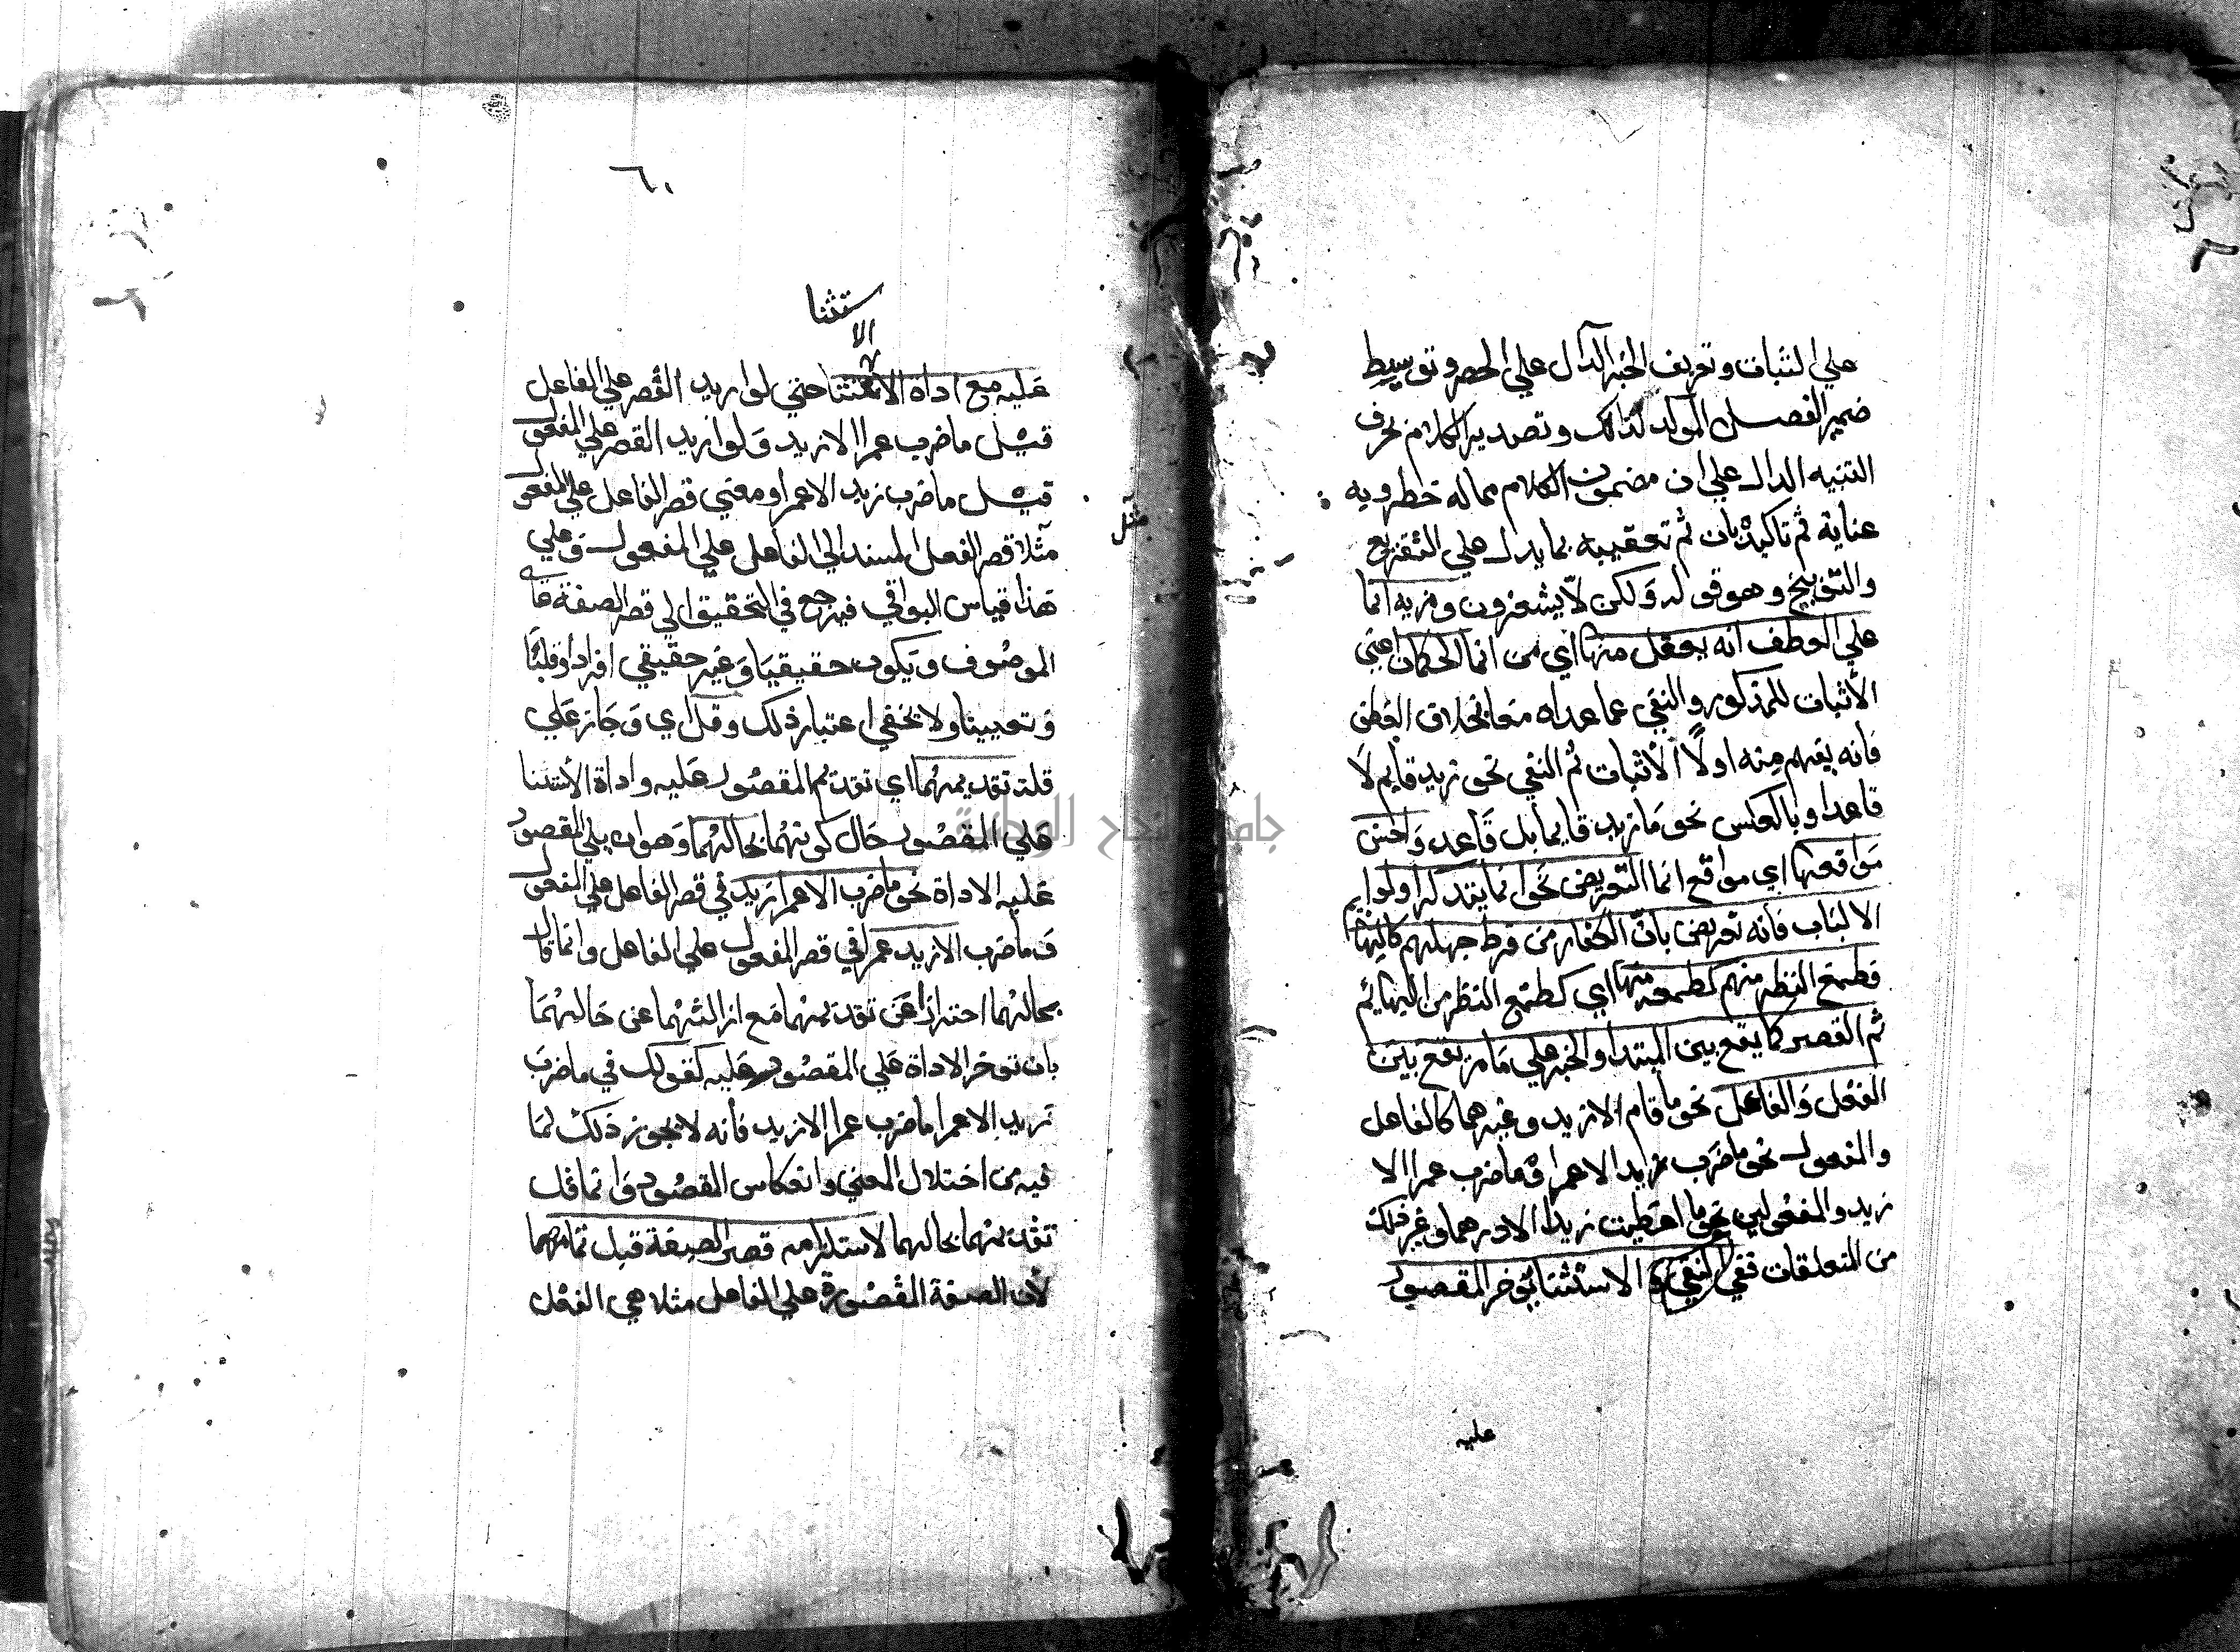 علي الثبات وتعريف الخبر الدال علي الحصر وتوسيط
ضمير الفصل المؤكد لذالك وتصدير الكلام بحرف
التنبيه الدال علي ان مضمون الكلام مما له خطر وبه
عناية ثم تاكيده بان ثم تعقيبه بما يدل علي التقريع
والتوبيخ وهو قوله ولكن لا يشعرون ومزية انما
علي العطف انه يعقل منها اي من انما الحكمان اعني
الأثبات للمذكور والنفي عما عداه معا بخلاف العطف
فانه يفهم منه اولا الأثبات ثم النفي نحو زيد قايم لا
قاعدا وبالعكس نحو ما زيد قايما بل قاعد واحسن
مواقعها اي مواقع انما التعريض نحو انما يتذكر اولوا
الالباب فأنه تعريض بأن الكفار من فرط جهلهم كالبهايم
فطمع النظر منهم كطمعه منها اي كطمع النظر من البهايم
ثم القصر كما يقع بين المبتدا والخبر علي ما مر يقع بين
الفعل والفاعل نحو ما قام الا زيد وغيرهما كالفاعل
والمفعول نحو ما ضرب زيد الا عمرا وما ضرب عمرا الا
زيد والمفعولين نحو ما اعطيت زيدا الا درهما وغير ذلك
من المتعلقات ففي الاستثنا يؤخر المقصور
عليه
٦٠
الاستثنا
عليه مع اداة الاستثنا حتي لو اريد القصر علي الفاعل
قيل ما ضرب عمرا الا زيد ولو اريد القصر علي المفعول
قيل ما ضرب زيد الا عمرا ومعني قصر الفاعل علي المفعول
مثل
مثلا قصر الفعل المسند الي الفاعل علي المفعول وعلي
هذا قياس البواقي فيرجع في التحقيق الي قصر الصفة علي
الموصوف ويكون حقيقيا وغير حقيقي افرادا وقلبا
وتعيينا ولا يخفي اعتبار ذلك وقل اي وجاز علي
قلة تقديمهما اي تقديم المقصور عليه واداة الأستثنا
علي المقصور حال كونهما بحالهما وهو ان يلي المقصور
عليه الاداة نحو ما ضرب الا عمرا زيد في قصر الفاعل علي المفعول
وما ضرب الا زيد عمرا في قصر المفعول علي الفاعل وانما قال
بحالهما احترازا عن تقديمهما مع ازالتهما عن حالهما
بان تؤخر الاداة علي المقصور عليه كقولك في ما ضرب
زيد الا عمرا ما ضرب عمرا الا زيد فأنه لا يجوز ذلك لما
فيه من اختلال المعني وانعكاس المقصود وانما قل
تقديمهما بحالهما لاستلزامه قصر الصفة قبل تمامهما
لأن الصفة المقصورة علي الفاعل مثلا هي الفعل
جامعة النجاح الوطنية